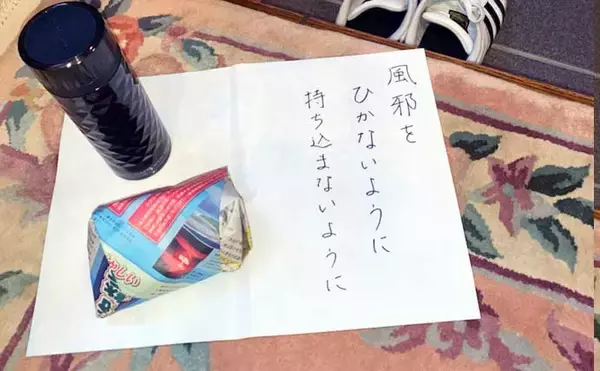 風邪を
ひかないように
持ち込まないように